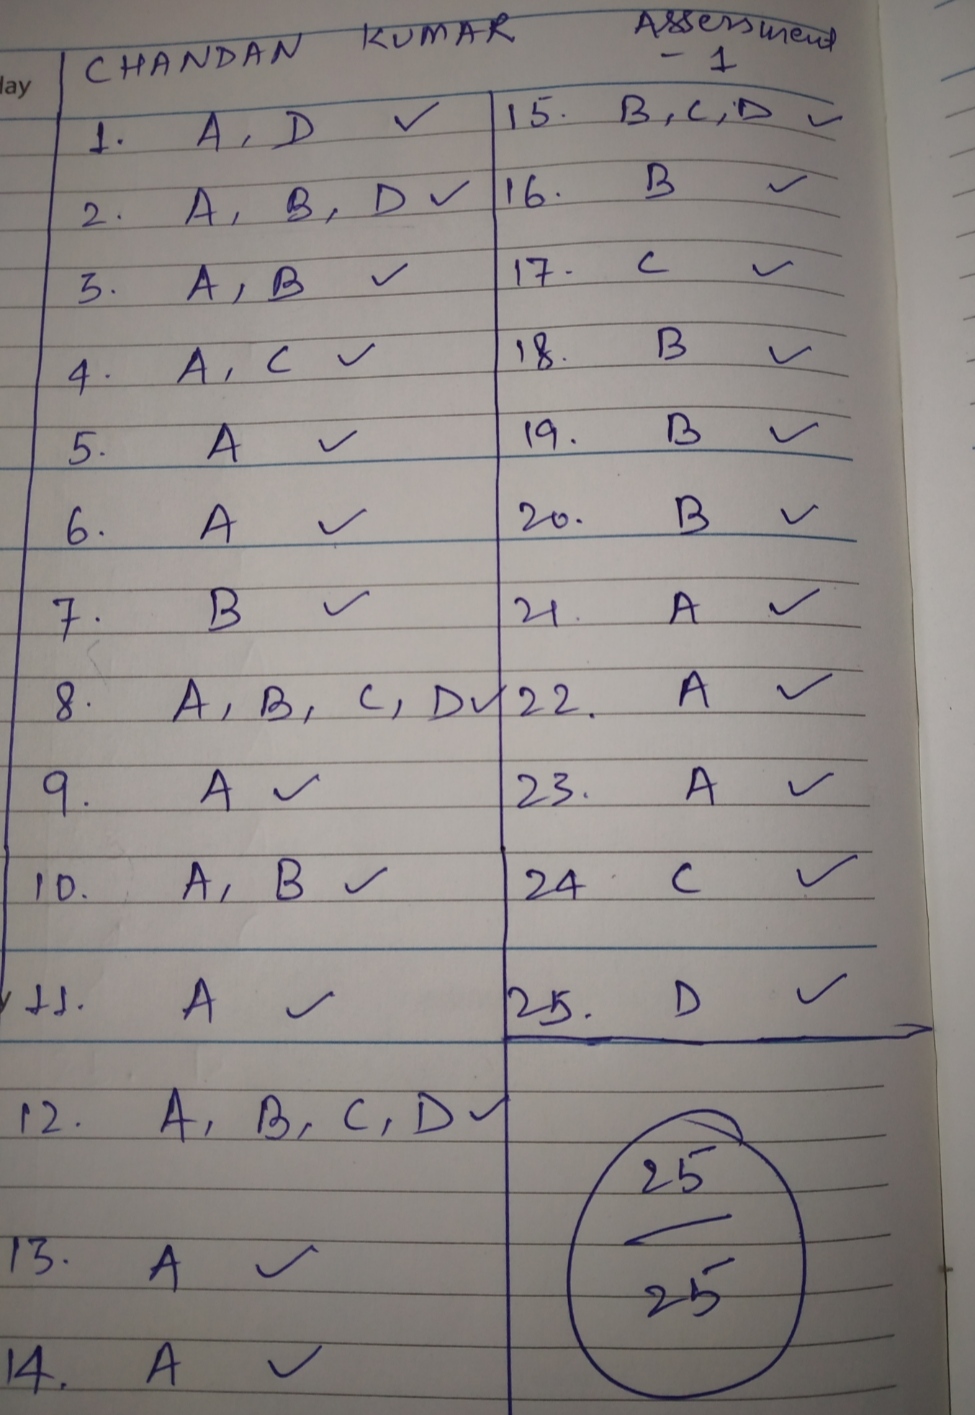 CHANDAN KUMAR Assessment
- 1
lay
1. A, D ✓
2. A, B, D ✓
3. A, B ✓
4. A, C ✓
5. A ✓
6. A ✓
7. B ✓
8. A, B, C, D ✓
9. A ✓
10. A, B ✓
11. A ✓
12. A, B, C, D ✓
13. A ✓
14. A ✓
15. B, C, D ✓
16. B ✓
17. C ✓
18. B ✓
19. B ✓
20. B ✓
21. A ✓
22. A ✓
23. A ✓
24 C ✓
25. D ✓
25
25